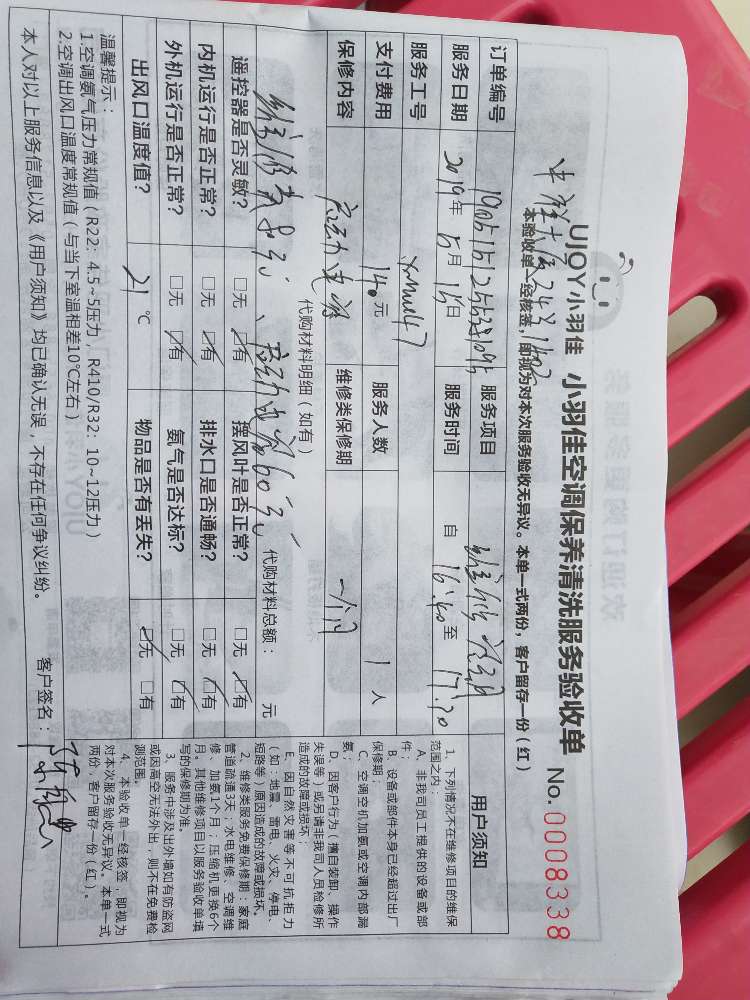 UJOY小羽佳 小羽佳空调保养清洗服务验收单 No.0008338
本验收单一经核签,即视为对本次服务验收无异议。本单一式两份,客户留存一份(红)
订单编号
服务项目
服务日期 2019年 5月 15日
服务时间 自 16:40 至 17:20
服务工号
支付费用 140元
服务人数 1 人
保修内容
维修类保修期 一个月
代购材料明细(如有)
代购材料总额: 元
遥控器是否灵敏? □无 ☑有
摆风叶是否正常? □无 ☑有
内机运行是否正常? □无 ☑有
排水口是否通畅? □无 ☑有
外机运行是否正常? □无 ☑有
氨气是否达标? □无 ☑有
出风口温度值? 21 ℃
物品是否有丢失? ☑无 □有
温馨提示:
1.空调氨气压力常规值(R22:4.5~5压力,R410/R32:10~12压力)
2.空调出风口温度常规值(与当下室温相差10℃左右)
本人对以上服务信息以及《用户须知》均已确认无误,不存在任何争议纠纷。
客户签名:
用户须知
1、下列情况不在维修项目的维保
范围之内:
A、非我司员工提供的设备或部
件;
B、设备或部件本身已经超过出厂
保修期;
C、空调空机加氨或空调内部漏
氨;
D、因客户行为(擅自装卸、操作
失误等)或另请非我司人员检修所
造成的故障或损坏;
E、因自然灾害等不可抗拒力
(如:地震、雷电、火灾、停电、
短路等)原因造成的故障或损坏。
2、维修类服务免费保修期:家庭
管道疏通3天;水电维修、空调维
修、加氨1个月;压缩机更换6个
月。其他维修项目以服务验收单填
写的保修期为准。
3、服务中涉及出外墙如有防盗网
或因高空无法外出,则不在免费检
测范围。
4、本验收单一经核签,即视为
对本次服务验收无异议。本单一式
两份,客户留存一份(红)。